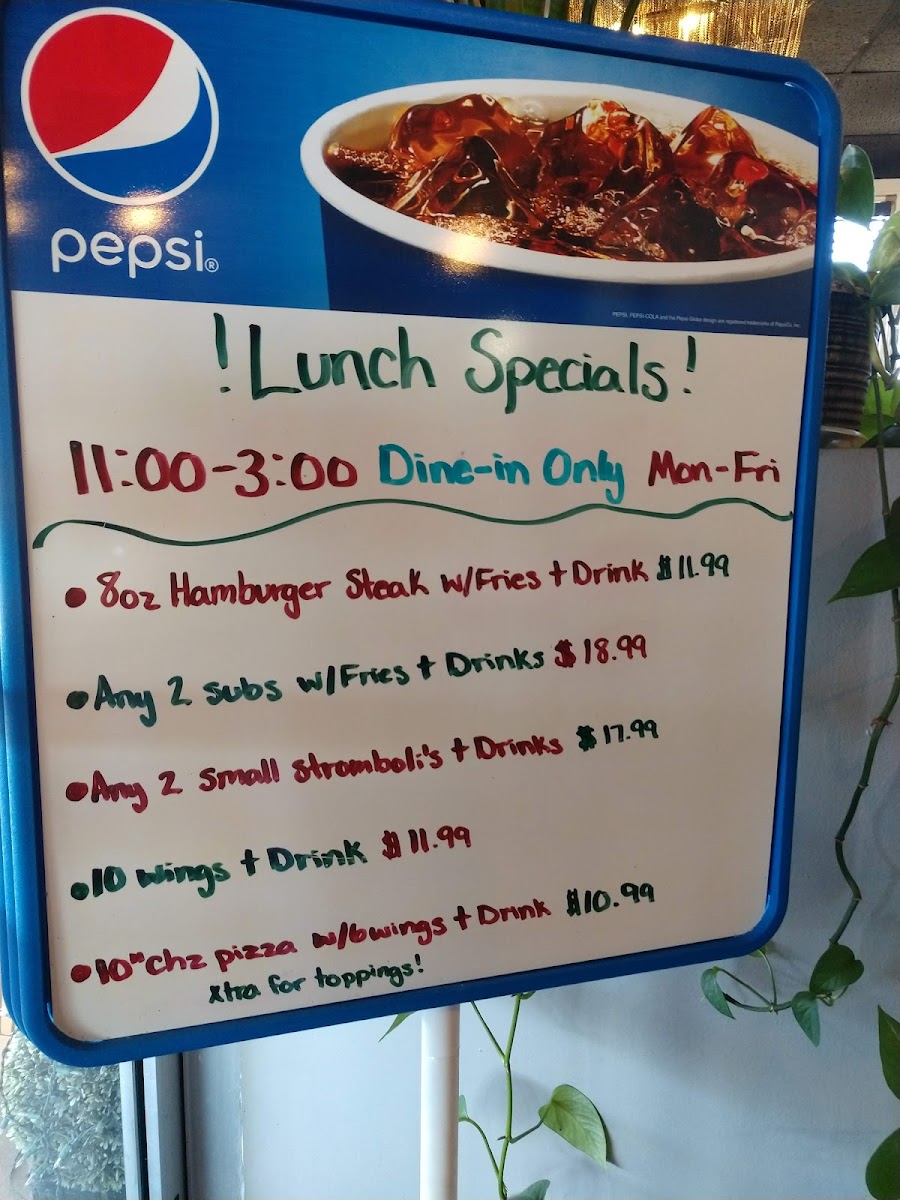 pepsi®
PEPSI, PEPSI-COLA and the Pepsi Globe design are registered trademarks of PepsiCo, Inc.
!Lunch Specials!
11:00-3:00 Dine-in Only Mon-Fri
• 8oz Hamburger Steak w/Fries + Drink $11.99
• Any 2 subs w/Fries + Drinks $18.99
• Any 2 small stromboli's + Drinks $17.99
• 10 wings + Drink $11.99
• 10" chz pizza w/6wings + Drink $10.99
xtra for toppings!